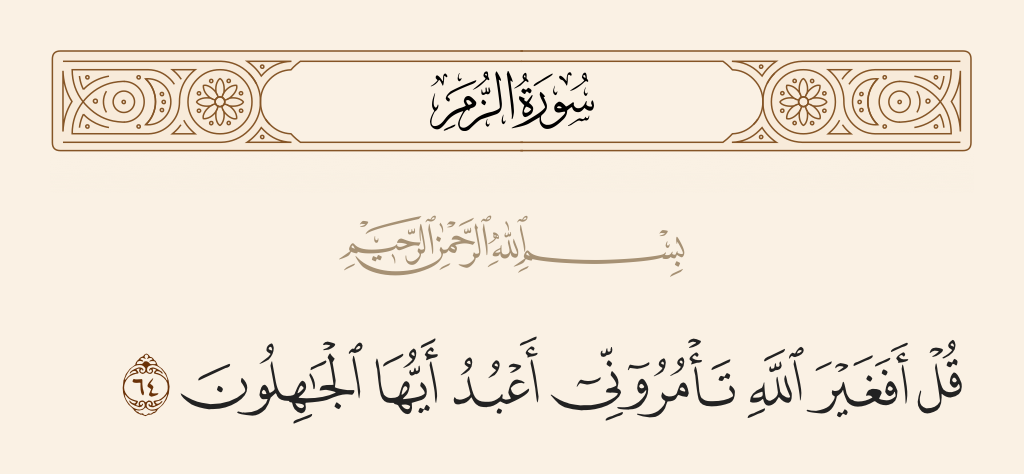 سُورَةُ الزُّمَرِ
بِسْمِ ٱللَّهِ ٱلرَّحْمَٰنِ ٱلرَّحِيمِ
قُلْ أَفَغَيْرَ ٱللَّهِ تَأْمُرُوٓنِّىٓ أَعْبُدُ أَيُّهَا ٱلْجَٰهِلُونَ ٦٤